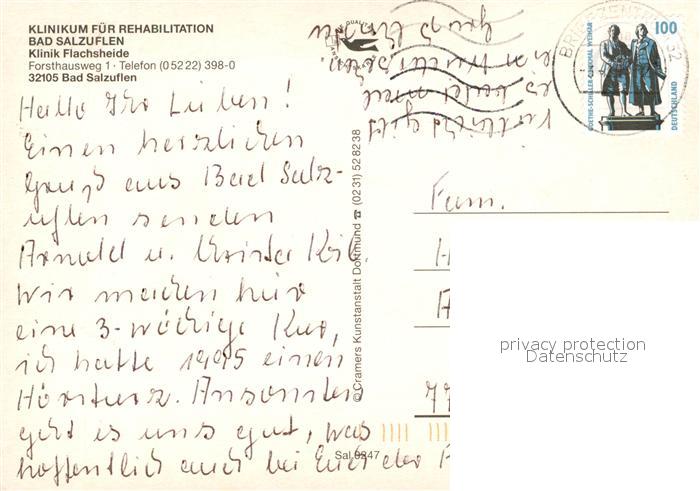 KLINIKUM FÜR REHABILITATION
BAD SALZUFLEN
Klinik Flachsheide
Forsthausweg 1 · Telefon (0 52 22) 398-0
32105 Bad Salzuflen
Hallo Ihr Lieben!
Einen herzlichen
Gruß aus Bad Salz-
uflen senden
Arnold u. Christa
Wir machen hier
eine 3-wöchige Kur,
ich hatte 1995 einen
Hörsturz. Ansonsten
geht es uns gut, was
hoffentlich auch bei Euch der
Vielleicht gibt
es bald mal
ein Wiedersehen.
© Cramers Kunstanstalt Dortmund ☎ (0231) 52 82 38
Sal 9247
BRIEFZENTRUM 32
GOETHE-SCHILLER-DENKMAL WEIMAR
100
DEUTSCHLAND
Fam.
H
A
77
privacy protection
Datenschutz